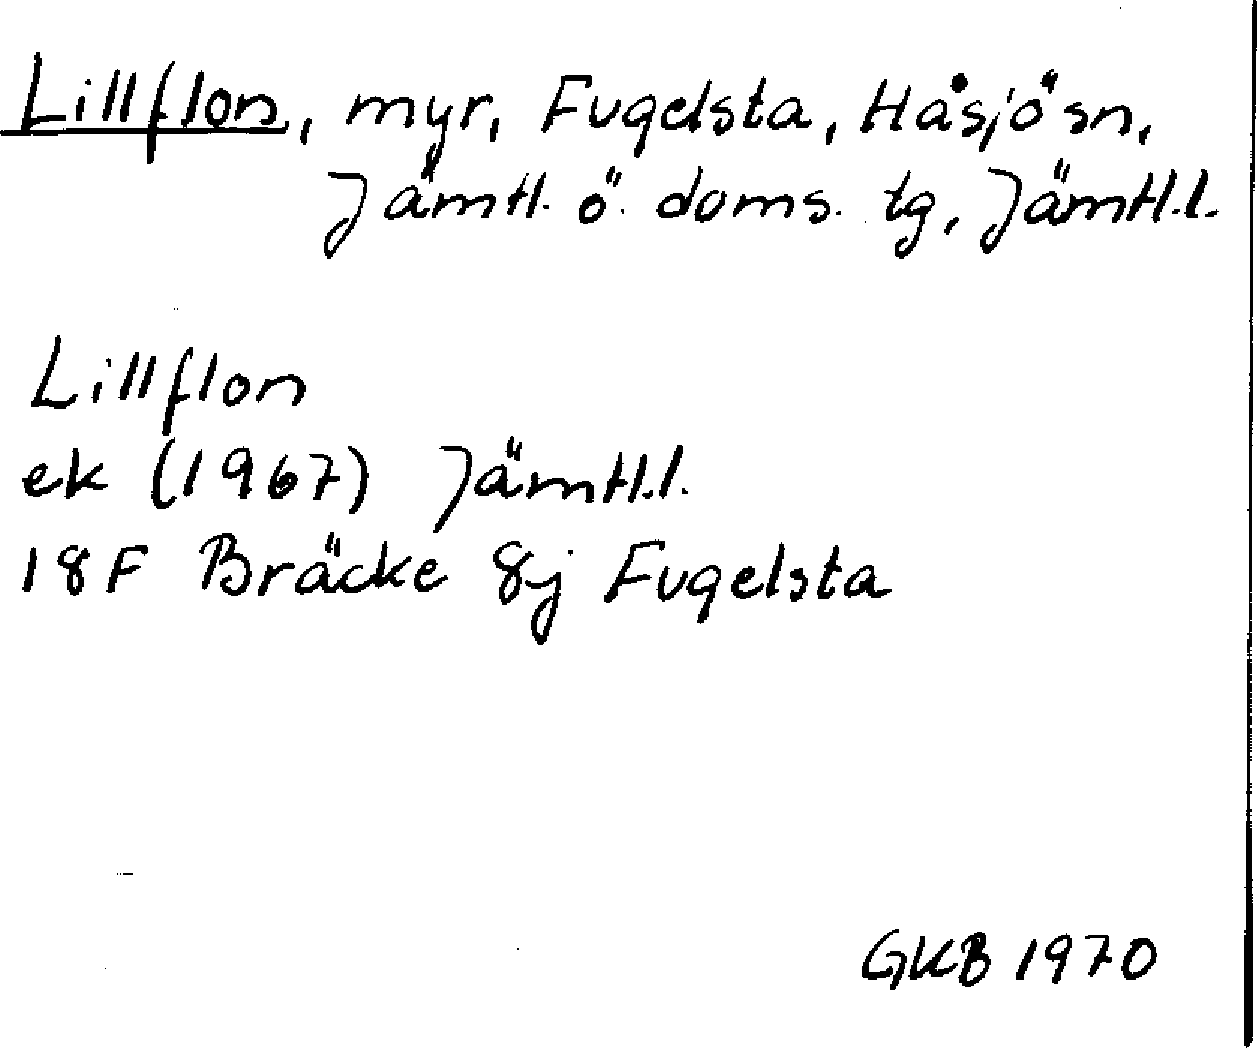 Lillflon, myr, Fugelsta, Håsjö sn,
Jämtl. ö. doms. tg, Jämtl.l.
Lillflon
ek (1967) Jämtl.l.
18F Bräcke 8j Fugelsta
GKB 1970